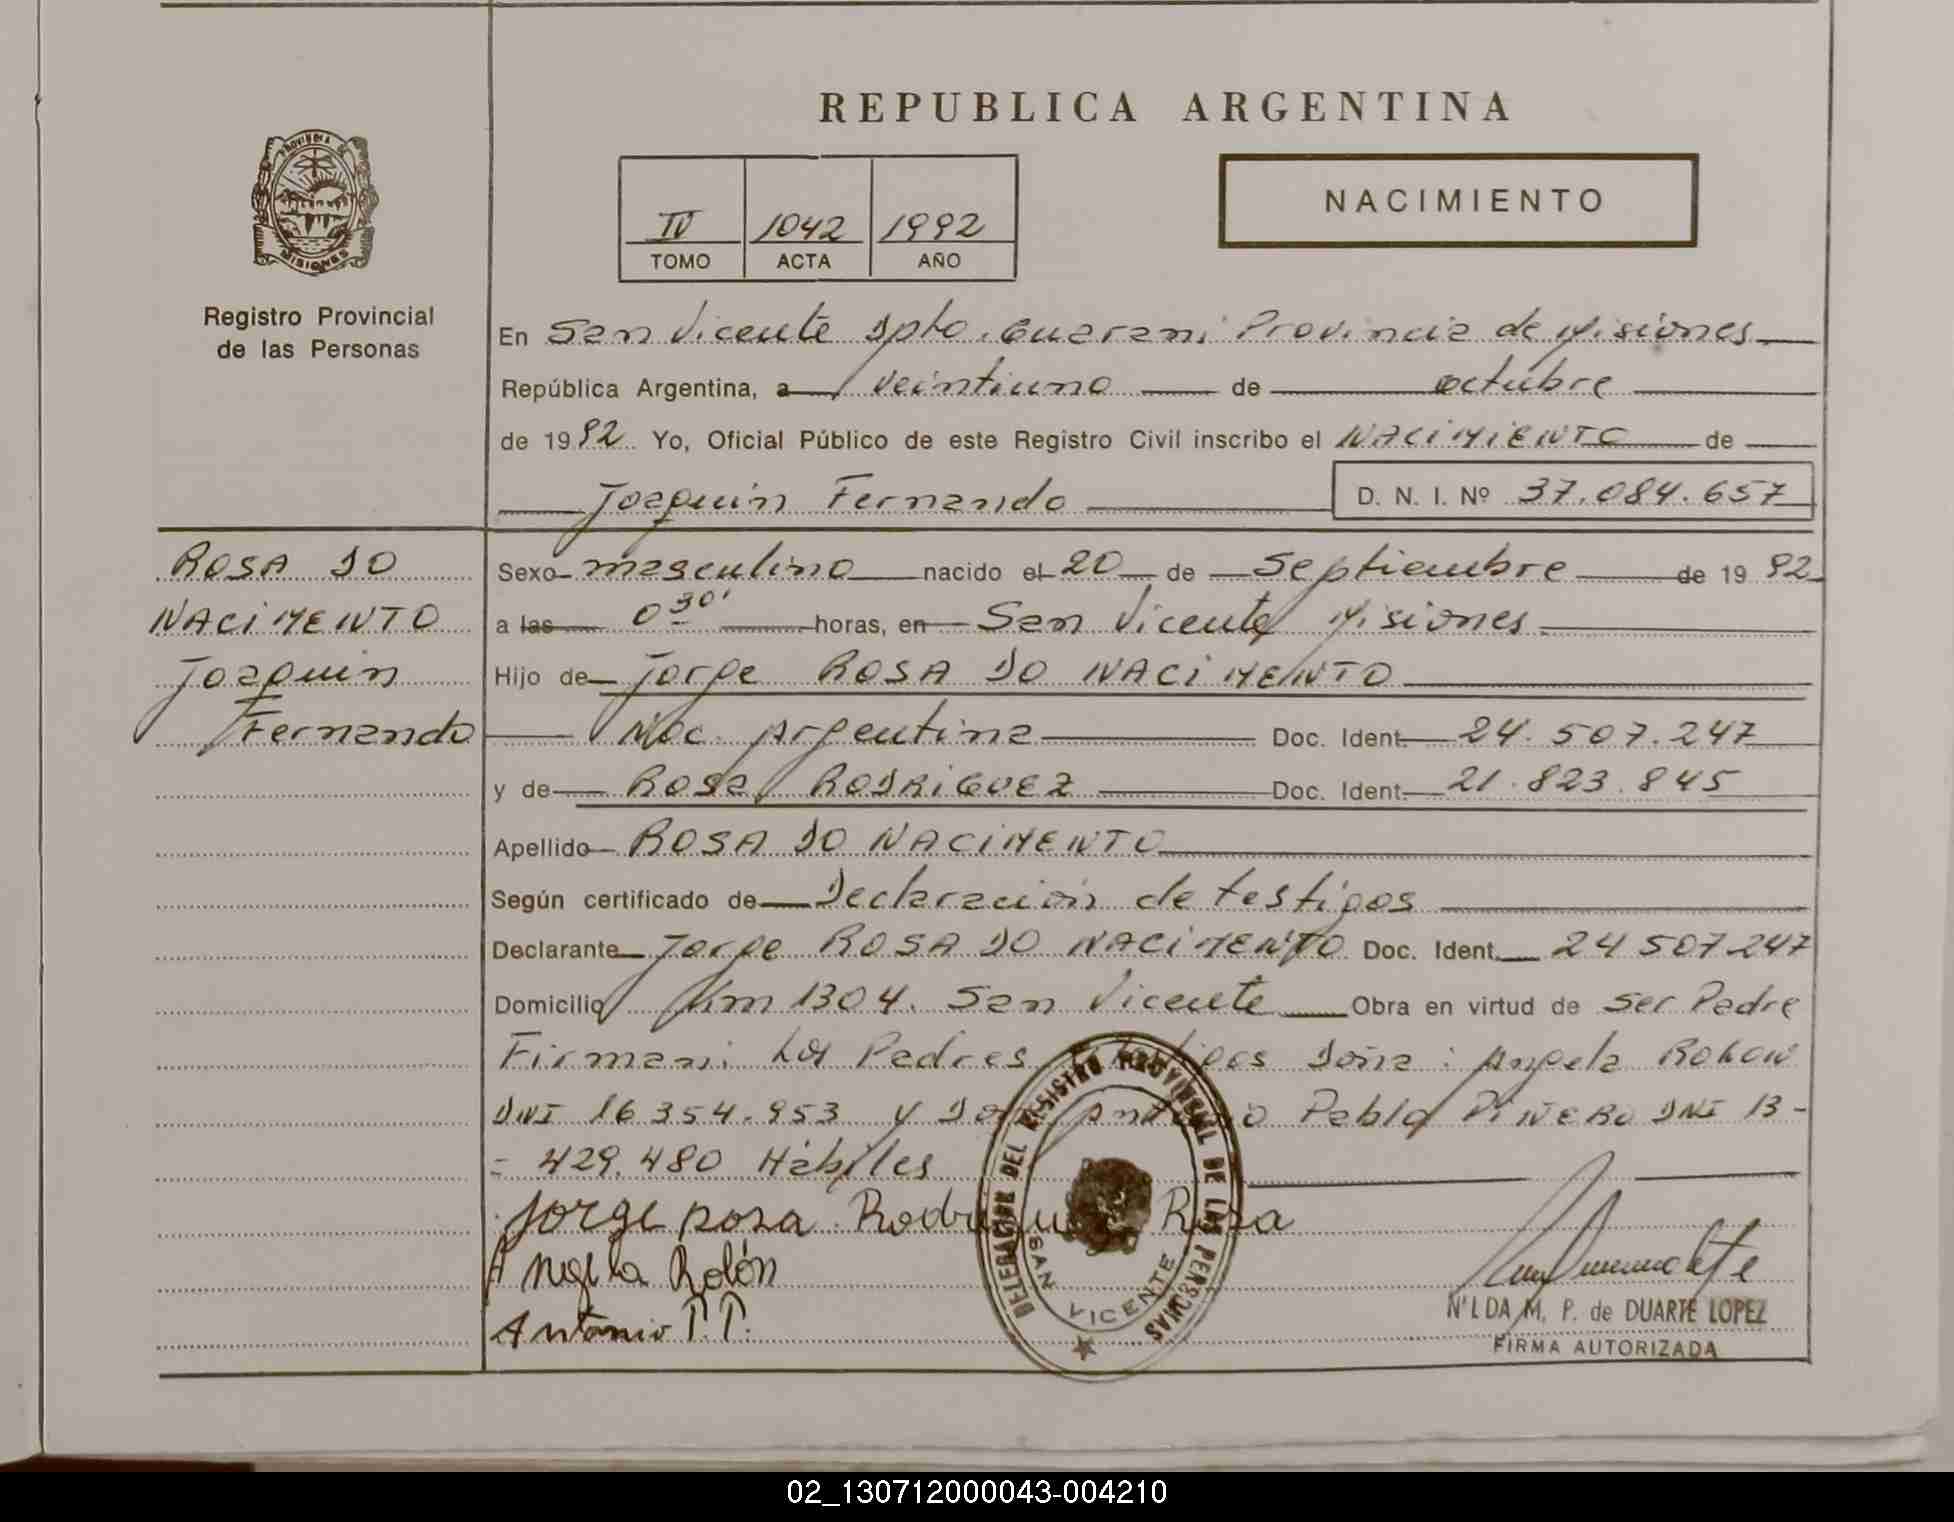 REPUBLICA ARGENTINA
PROVINCIA DE
MISIONES
Registro Provincial
de las Personas
IV 1042 1992
TOMO ACTA AÑO
NACIMIENTO
En San Vicente Dpto. Guarani Provincia de Misiones
República Argentina, a veintiuno de octubre
de 1992 Yo, Oficial Público de este Registro Civil inscribo el NACIMIENTO de
Joaquin Fernando D. N. I. Nº 37.084.657
ROSA DO
NACIMENTO
Joaquin
Fernando
Sexo masculino nacido el 20 de Septiembre de 1992
a las 0 30' horas, en San Vicente Misiones
Hijo de Jorge ROSA DO NACIMENTO
Nac. Argentina Doc. Ident. 24.507.247
y de Rosa RODRIGUEZ Doc. Ident. 21.823.845
Apellido ROSA DO NACIMENTO
Según certificado de Declaración de testigos
Declarante Jorge ROSA DO NACIMENTO Doc. Ident. 24507247
Domicilio Km 1304. San Vicente Obra en virtud de ser Padre
Firman: Los Padres testigos Doña: Angela
DNI 16354.953 y Don Antonio Pablo PIÑERO DNI 13-
- 429.480 Hábiles
Jorge rosa Rodriguez Rosa
Angela Rolón
Antonio P.P.
DELEGACION DEL REGISTRO PROVINCIAL DE LAS PERSONAS
SAN VICENTE
NILDA M. P. de DUARTE LOPEZ
FIRMA AUTORIZADA
02_130712000043-004210